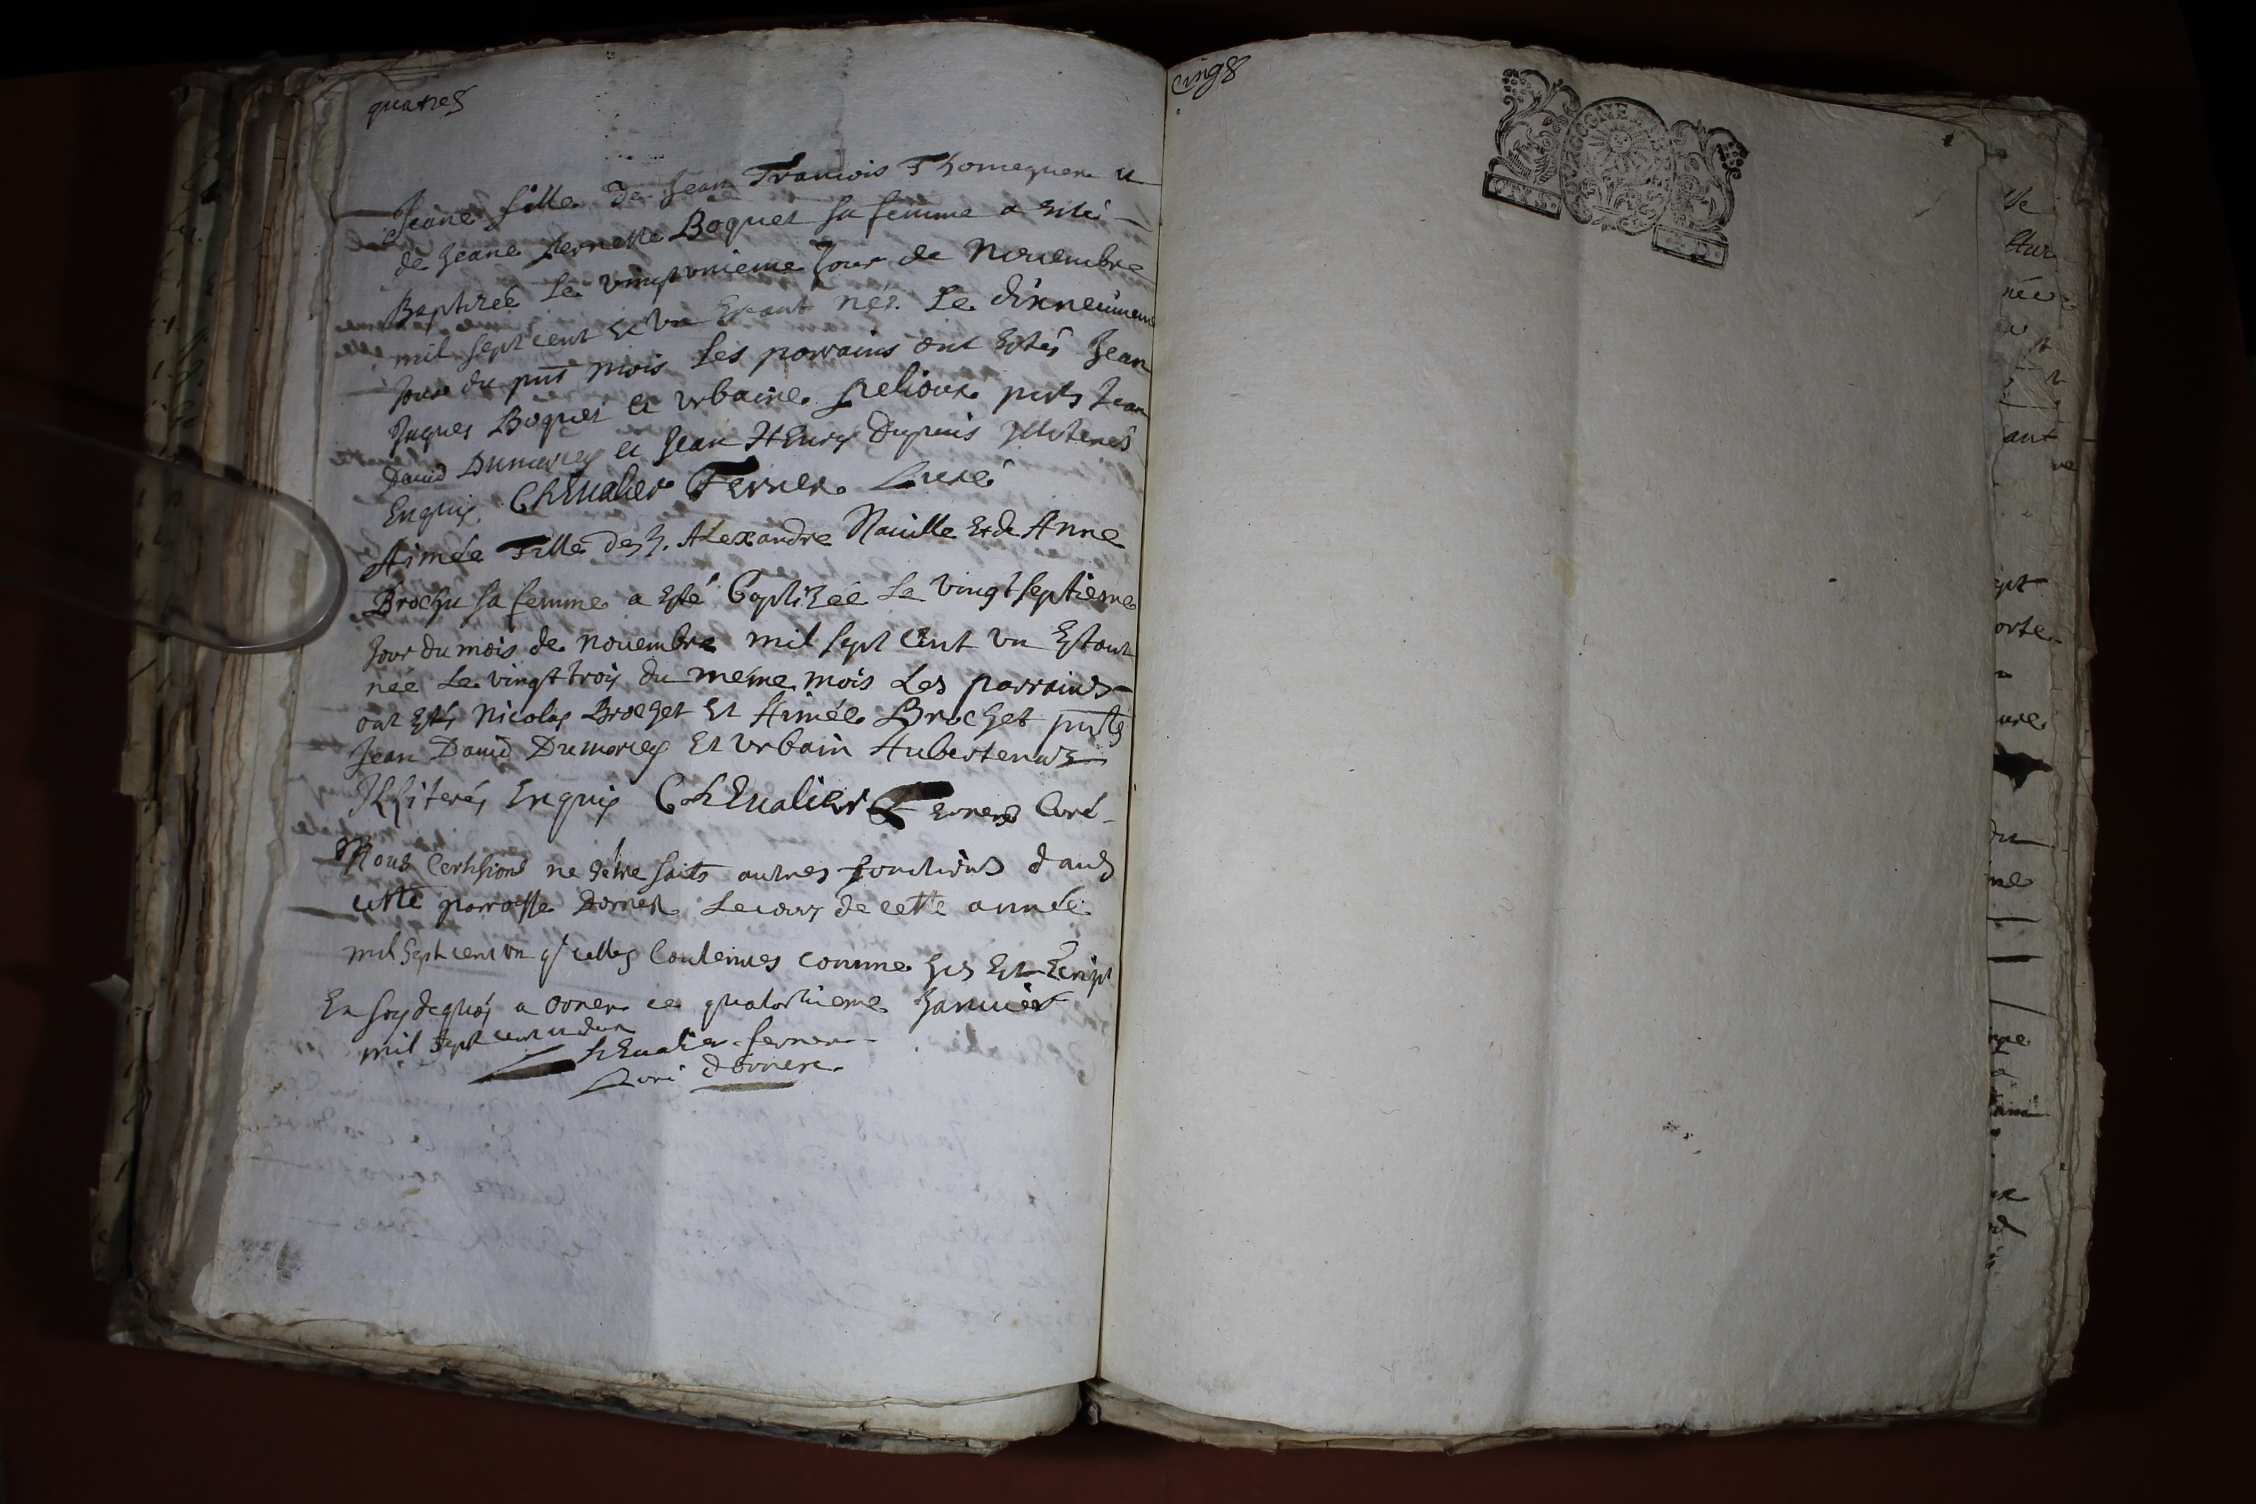 quatre
Jeane fille de Jean Francois Thomeguex et
de Jeane pernette Boquet sa femme a esté
Baptizée le vingtunieme Jour de Novembre
mil sept cent et un Estant née Le dixneuvieme
Jour du pnt mois Les parrains ont estés Jean
Jaques Boquet et urbaine pnts Jean
David Dumarey et Jean Henry Dupuis Illiterés
Enquis ChEvalier Ferner Curé
Aimée Fille de h. Alexandre Naville Et de Anne
Brochu sa femme a esté baptizée Le vingt septieme
Jour du mois de novembre mil sept cent un Estant
née Le vingt trois du méme mois Les parrains
ont estés Nicolas Brochet Et Aimée Brochet pnts
Jean David Dumarey Et urbain
Illiterés Enquis ChEvalier Ferner Curé
Nous Certifions ne s'étre faits autres fonctions dans
cette parroisse Le cours de cette année
mil sept cent un q' celles Contenues comme Est Ecript
En foy dequoy a ce quatorzieme Janvier
mil sept cent et deux
ChEvalier ferner
Curé
cinq
BOURGOGNE